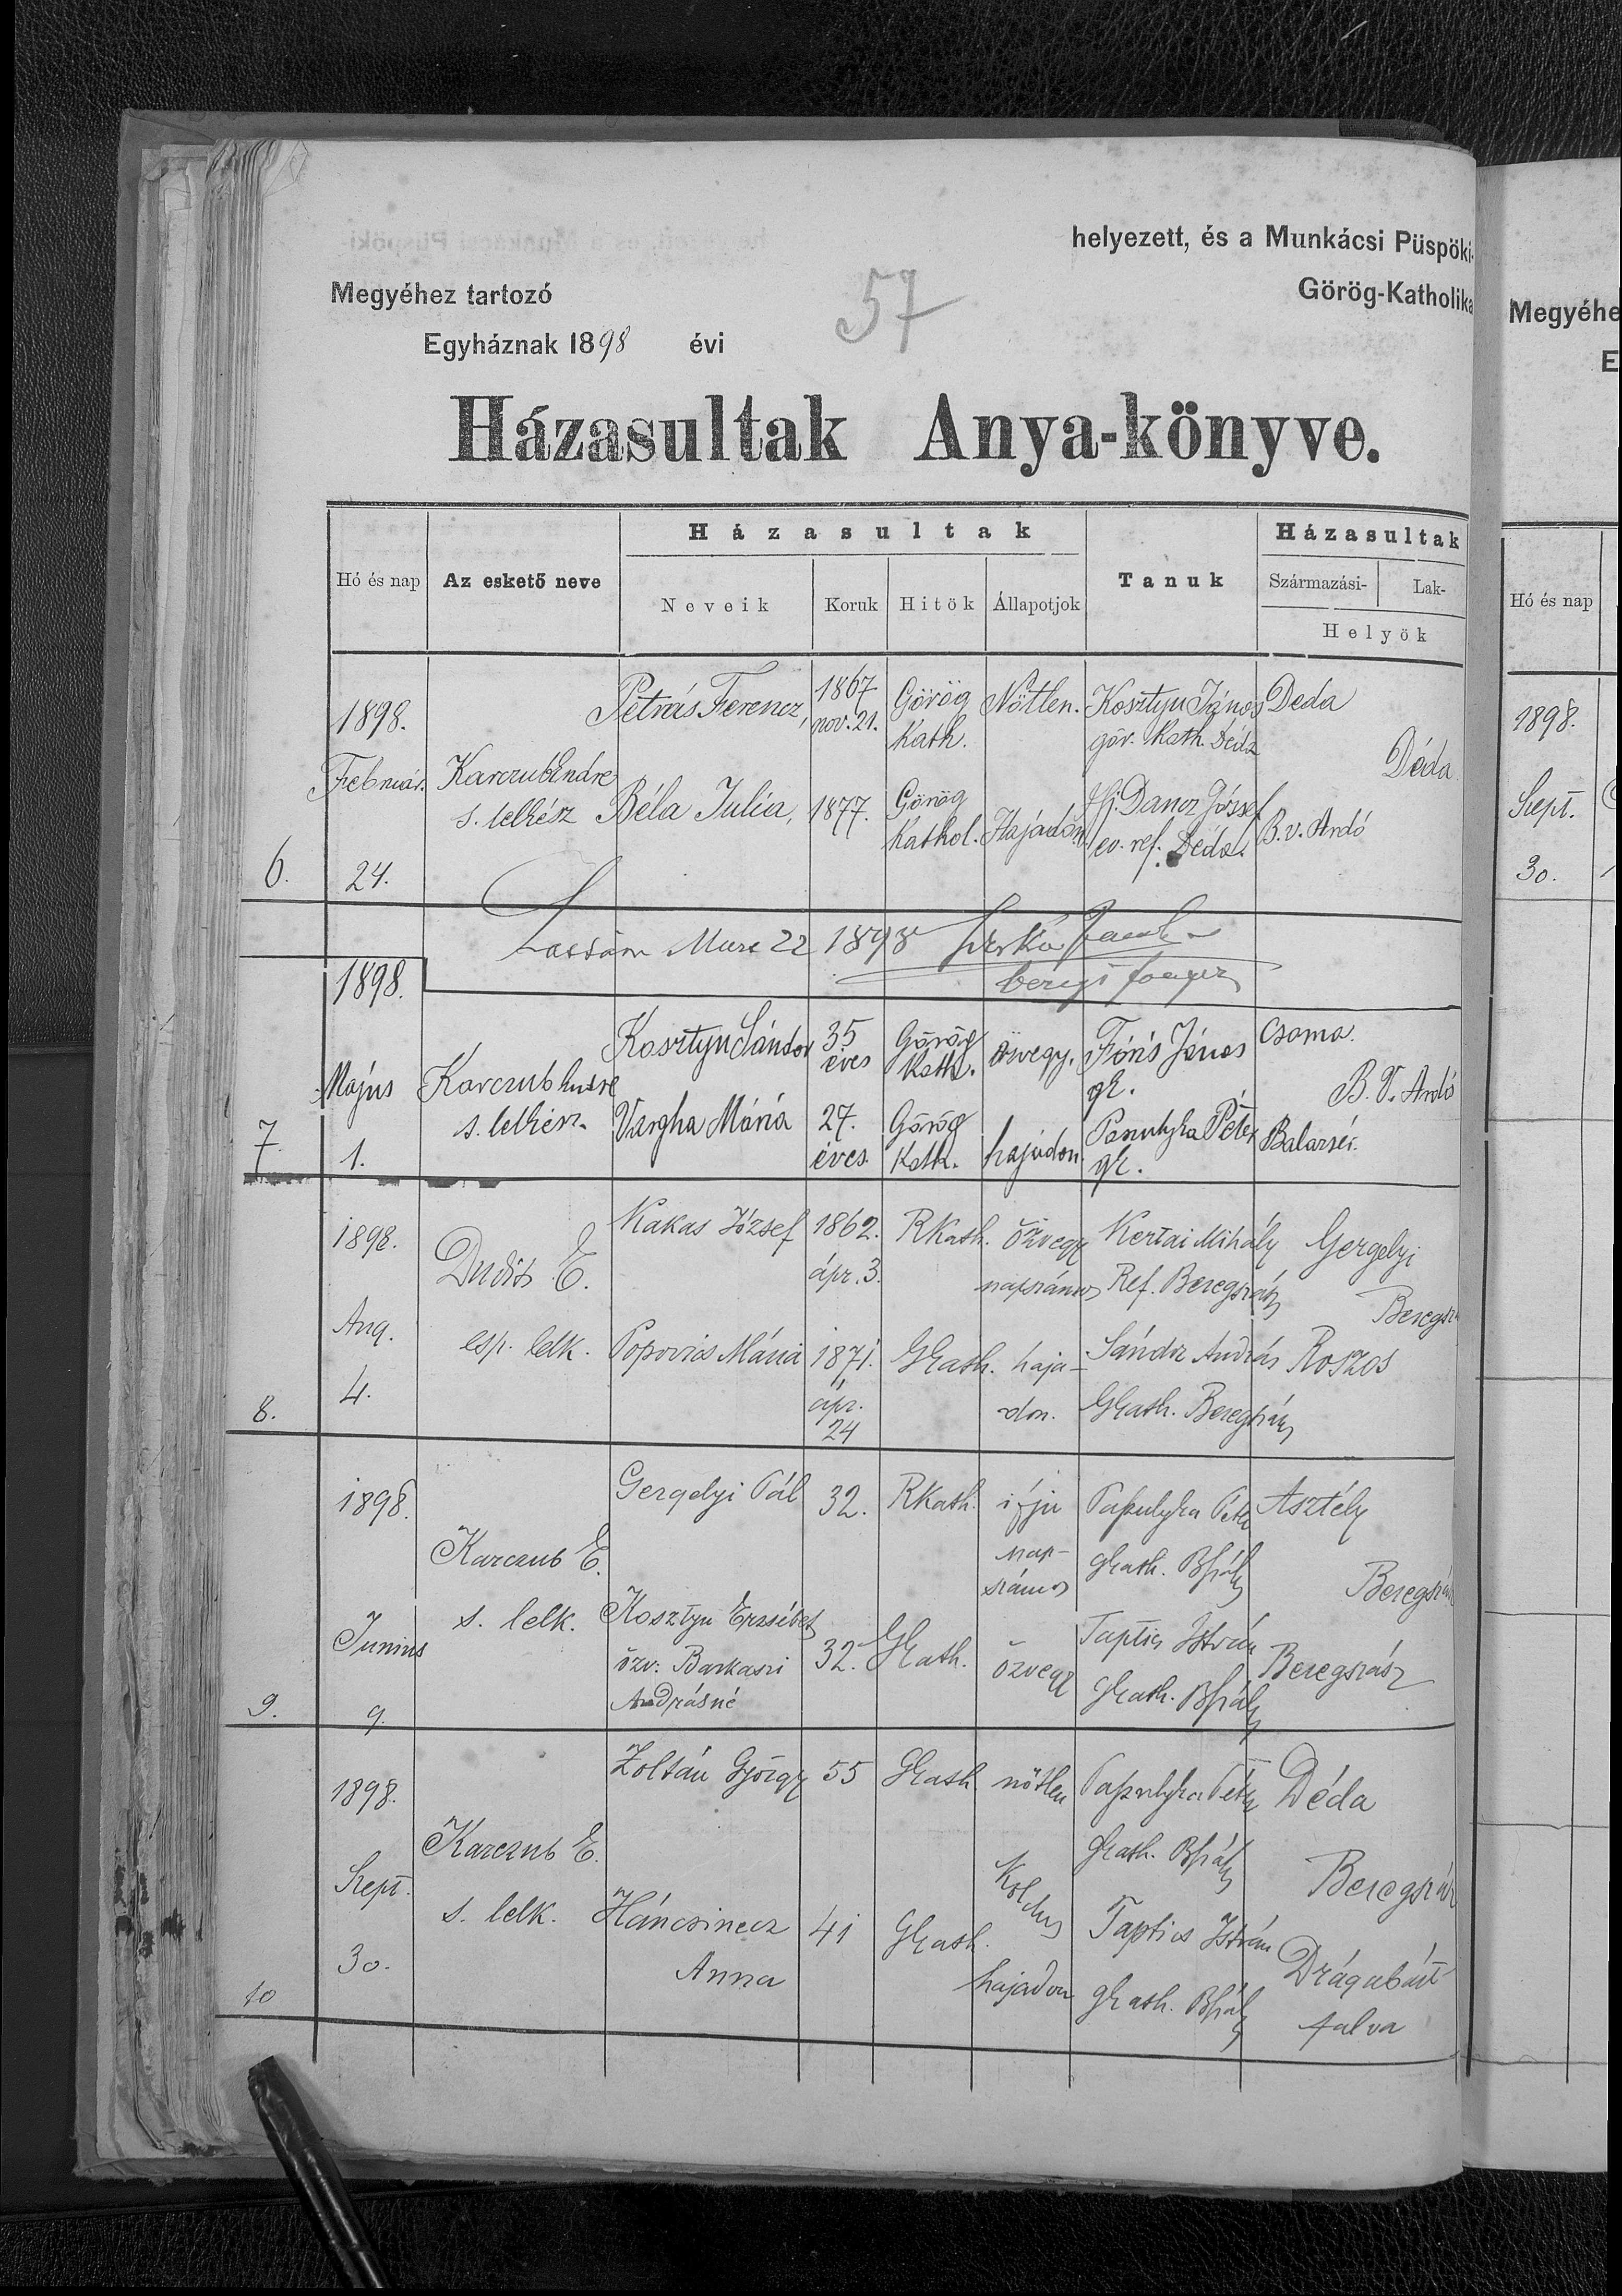 helyezett, és a Munkácsi Püspöki-
Megyéhez tartozó
57
Görög-Katholika
Egyháznak 1898 évi
Házasultak Anya-könyve.
Hó és nap
Az eskető neve
Házasultak
Neveik
Koruk
Hitök
Állapotjok
Tanuk
Házasultak
Származási-
Lak-
Helyök
6.
1898.
Február.
24.
Karczub Endre
s. lelkész
Petrás Ferencz,
1867
nov. 21.
Görög
Kath.
Nőtlen.
Kosztyu János
gör. Kath. Déda
Deda
Déda
Béla Julia,
1877.
Görög
Kathol.
Hajadon
Ifj. Dancz József
ev. ref. Déda.
B.v. Ardó
1898
beregi
7
1898.
Május
1.
Karczub Endre
s. lelkész
Kosztyu Sándor
35
éves
Görög
Kath.
özvegy.
Fóris János
gk.
Csoma.
B. V. Ardó
Vargha Mária
27.
éves
Görög
Kath.
hajadon
Papulyka Péter
gk.
8.
1898.
Aug.
4.
Dudits E.
esp. lelk.
Kakas József
1862.
ápr. 3.
RKath.
özvegy
napszámos
Kertai Mihály
Ref. Beregszász
Gergelyi
Beregsz
Popovics Mária
1871.
ápr.
24
GKath.
haja-
don.
Sándor András
GKath. Beregszász
Roszos
9.
1898.
Junius
9.
Karczub E.
s. lelk.
Gergelyi Pál
32.
RKath.
ifju
nap-
számos
Papulyka Péter
gkath. Bszász
Asztély
Beregszász
Kosztyu Erzsébet
özv: Barkaszi
Andrásné
32.
GKath.
özvegy
Taptics István
Gkath. Bszász
Beregszász
10
1898.
Szept.
30.
Karczub E.
s. lelk.
Zoltán György
55
GKath
nőtlen
Papulyka Péter
Gkath. Bszász
Déda
Beregszász
Háncsinecz
Anna
41
GKath.
hajadon
Taptics István
gkath. Bszász
Drágabárt-
falva
Megyéhe
E
Hó és nap
1898.
Szept.
30.